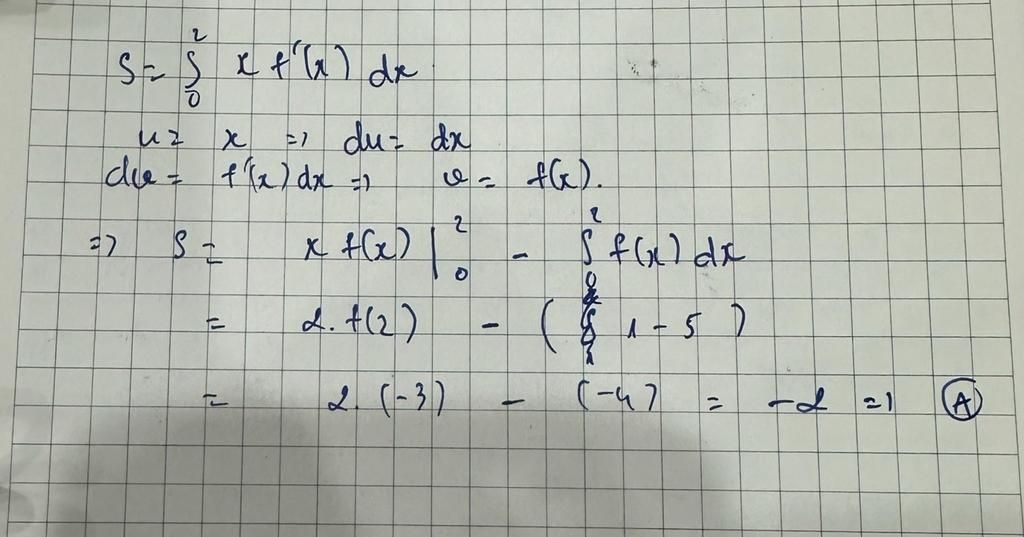 S = ∫₀² x f'(x) dx
u = x => du = dx
dv = f'(x) dx => v = f(x).
=> S = x f(x) |₀² - ∫₀² f(x) dx
= 2. f(2) - ( 1 - 5 )
= 2. (-3) - (-4) = -2 => A